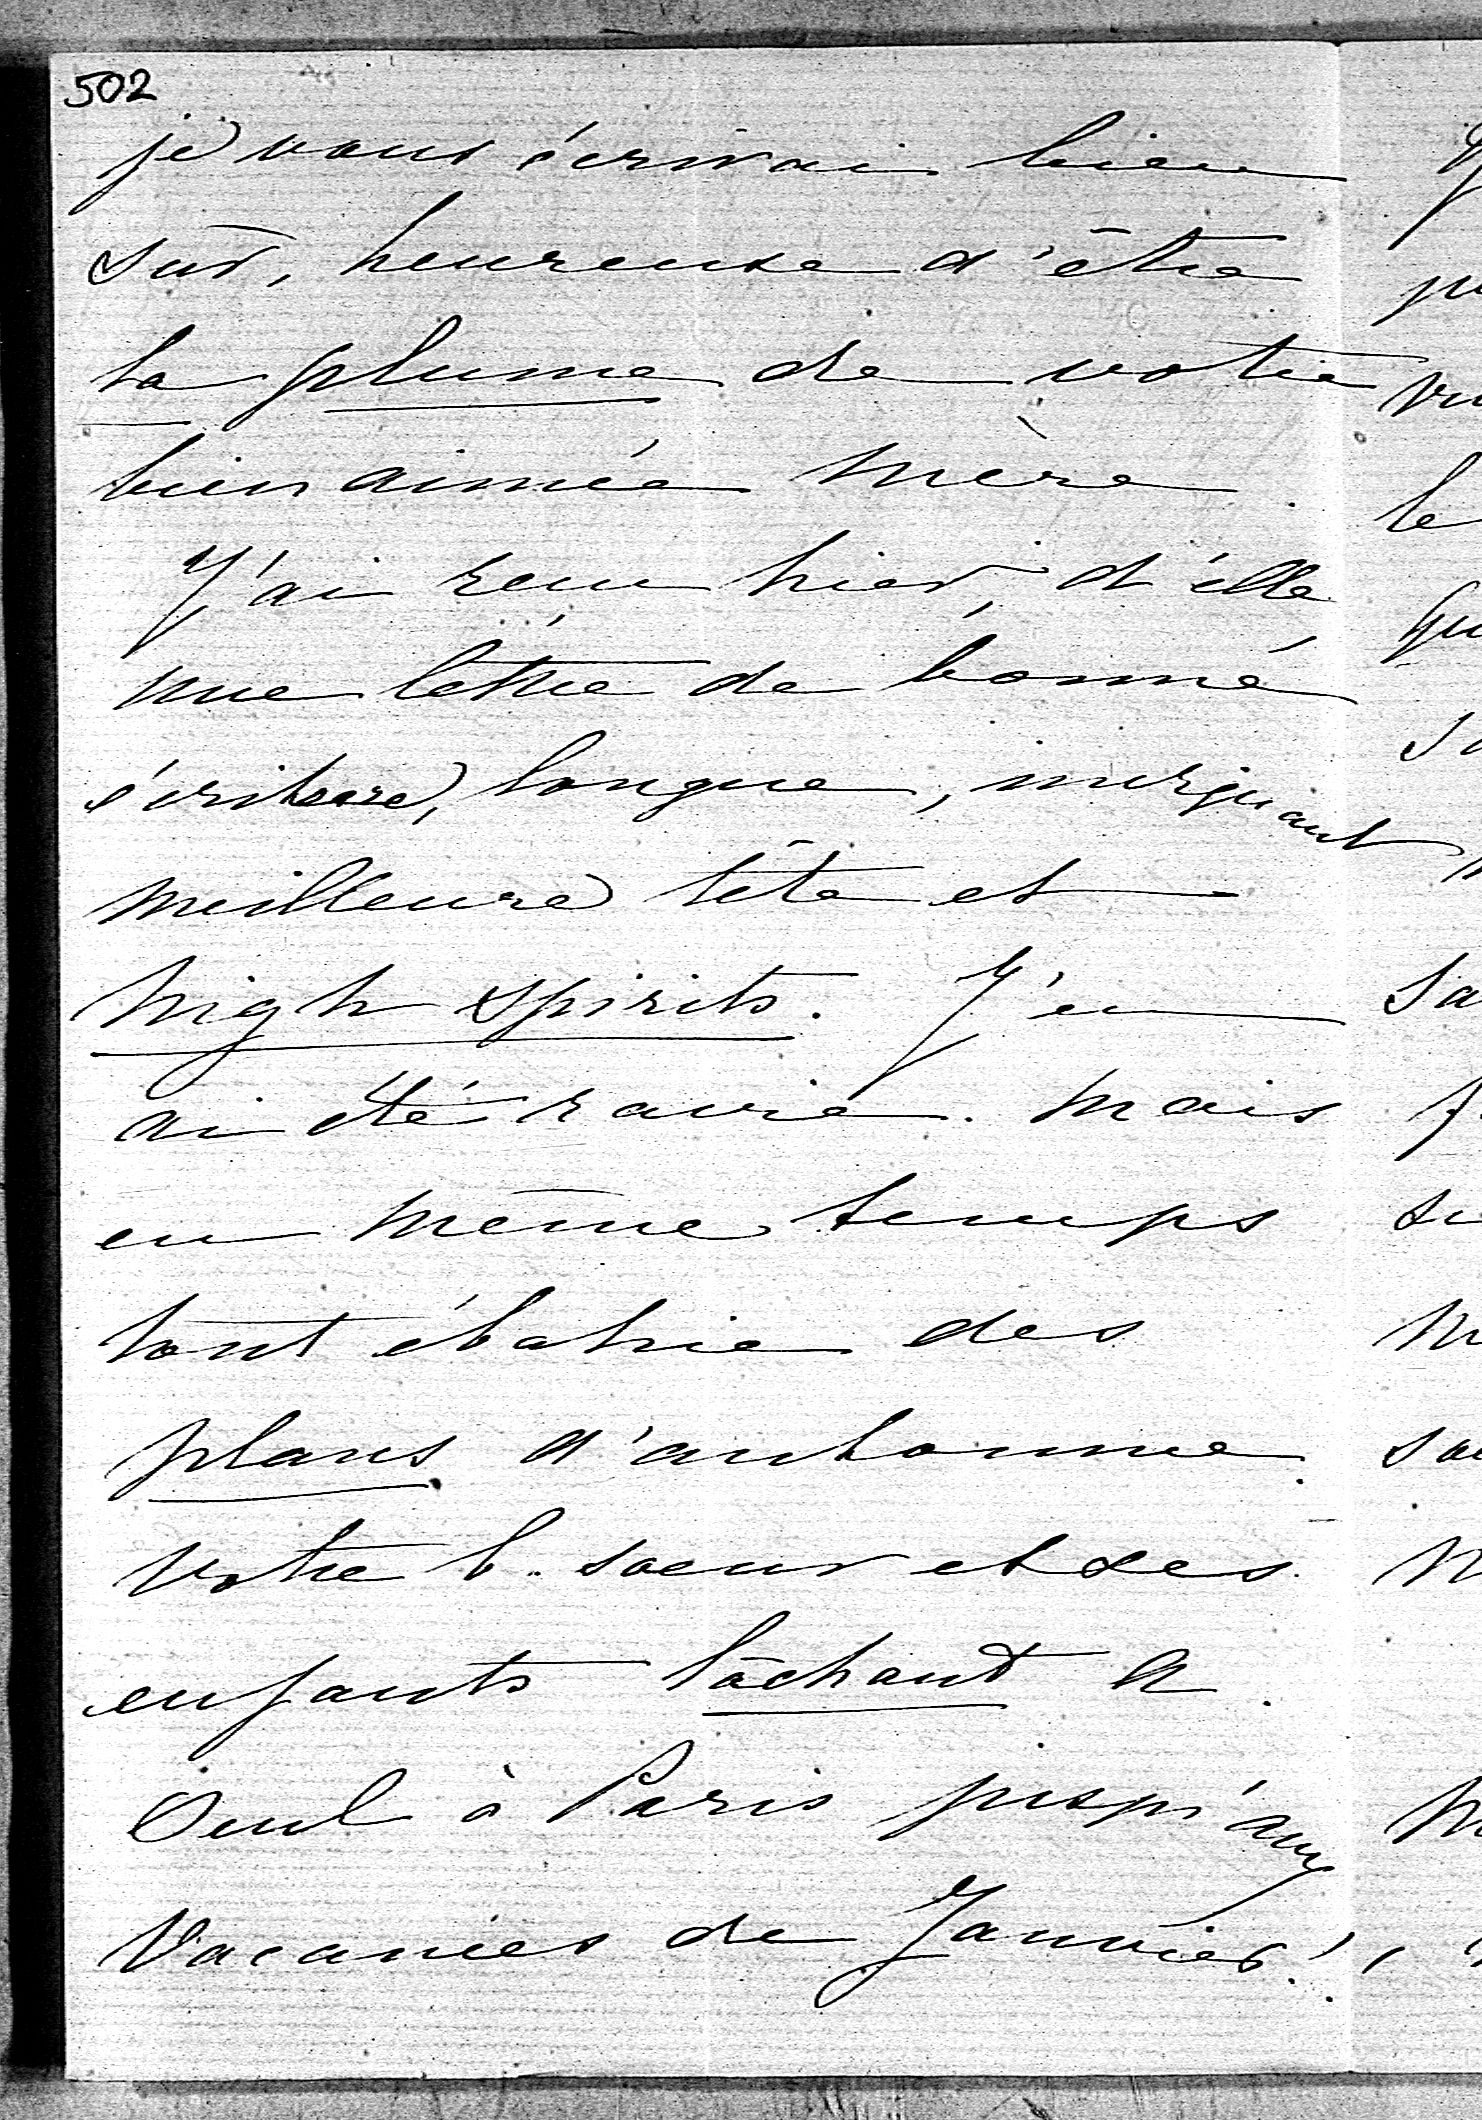 502
je vous écrivai bien
sûr, heureuse d'être
la plume de votre
bien aimée mère
J'ai reçu hier, d'elle
une lettre de bonne
écriture, longue, indiquant
meilleure tête et
high spirits. J'en
ai été ravie. Mais
en même temps
tout ébahie des
plans d'automne.
Votre b. soeur et ses
enfants lâchant A.
seul à Paris jusqu'aux
Vacances de Janvier!